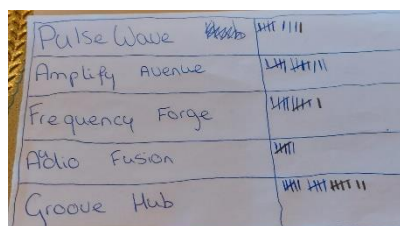 Pulse Wave 卌 ||||
Amplify Avenue 卌 卌 ||
Frequency Forge 卌 卌 |
Audio Fusion 卌 |
Groove Hub 卌 卌 卌 ||